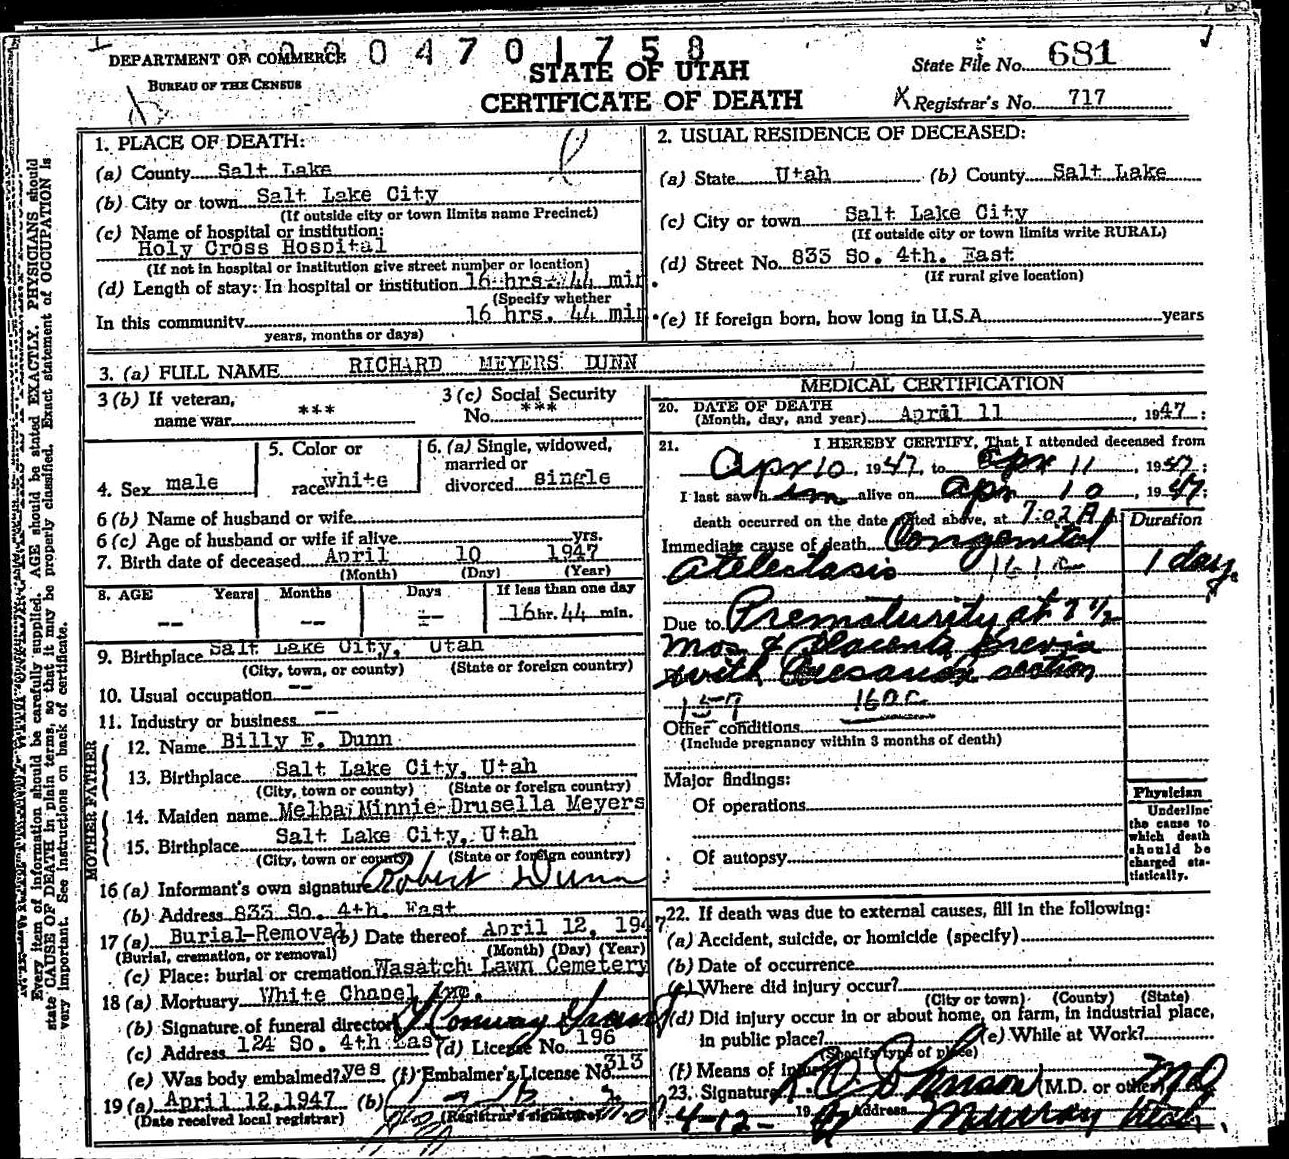 0004701758
DEPARTMENT OF COMMERCE
BUREAU OF THE CENSUS
STATE OF UTAH
CERTIFICATE OF DEATH
State File No. 681
Registrar's No. 717
1. PLACE OF DEATH:
(a) County Salt Lake
(b) City or town Salt Lake City
(If outside city or town limits name Precinct)
(c) Name of hospital or institution:
Holy Cross Hospital
(If not in hospital or institution give street number or location)
(d) Length of stay: In hospital or institution 16 hrs. 44 min.
(Specify whether
In this community 16 hrs. 44 min.
years, months or days)
2. USUAL RESIDENCE OF DECEASED:
(a) State Utah (b) County Salt Lake
(c) City or town Salt Lake City
(If outside city or town limits write RURAL)
(d) Street No. 833 So. 4th. East
(If rural give location)
(e) If foreign born, how long in U.S.A. years
3. (a) FULL NAME RICHARD MEYERS DUNN
3 (b) If veteran, name war ***
3 (c) Social Security No. ***
4. Sex male
5. Color or race white
6. (a) Single, widowed, married or divorced single
6 (b) Name of husband or wife
6 (c) Age of husband or wife if alive yrs.
7. Birth date of deceased April 10 1947
(Month) (Day) (Year)
8. AGE Years Months Days If less than one day
-- -- -- 16 hr. 44 min.
9. Birthplace Salt Lake City, Utah
(City, town, or county) (State or foreign country)
10. Usual occupation --
11. Industry or business --
FATHER
12. Name Billy F. Dunn
13. Birthplace Salt Lake City, Utah
(City, town or county) (State or foreign country)
MOTHER
14. Maiden name Melba Minnie Drusella Meyers
15. Birthplace Salt Lake City, Utah
(City, town or county) (State or foreign country)
16 (a) Informant's own signature Robert Dunn
(b) Address 833 So. 4th. East
17 (a) Burial-Removal (b) Date thereof April 12, 1947
(Burial, cremation, or removal) (Month) (Day) (Year)
(c) Place: burial or cremation Wasatch Lawn Cemetery
18 (a) Mortuary White Chapel Inc.
(b) Signature of funeral director Conway Grant
(c) Address 124 So. 4th East (d) License No. 196
(e) Was body embalmed? yes (f) Embalmer's License No. 313
19 (a) April 12, 1947 (b)
(Date received local registrar) (Registrar's signature)
MEDICAL CERTIFICATION
20. DATE OF DEATH
(Month, day, and year) April 11, 1947;
21. I HEREBY CERTIFY, That I attended deceased from
Apr 10, 1947, to Apr 11, 1947;
I last saw him alive on Apr 10, 1947;
death occurred on the date stated above, at 7:02 A m. Duration
Immediate cause of death Congenital
atelectasis 161c 1 day
Due to Prematurity at 7 1/2
mos & Placenta Previa
with Cesarian section
157 160c
Other conditions
(Include pregnancy within 3 months of death)
Major findings:
Of operations
Of autopsy
Physician
Underline
the cause to
which death
should be
charged sta-
tistically.
22. If death was due to external causes, fill in the following:
(a) Accident, suicide, or homicide (specify)
(b) Date of occurrence
(c) Where did injury occur?
(City or town) (County) (State)
(d) Did injury occur in or about home, on farm, in industrial place,
in public place? (e) While at Work?
(Specify type of place)
(f) Means of Injury
23. Signature Johnson (M.D. or other) MD
4-12- 1947 Address Murray Utah
Every item of information should be carefully supplied. AGE should be stated EXACTLY. PHYSICIANS should
state CAUSE OF DEATH in plain terms, so that it may be properly classified. Exact statement of OCCUPATION is
very important. See instructions on back of certificate.